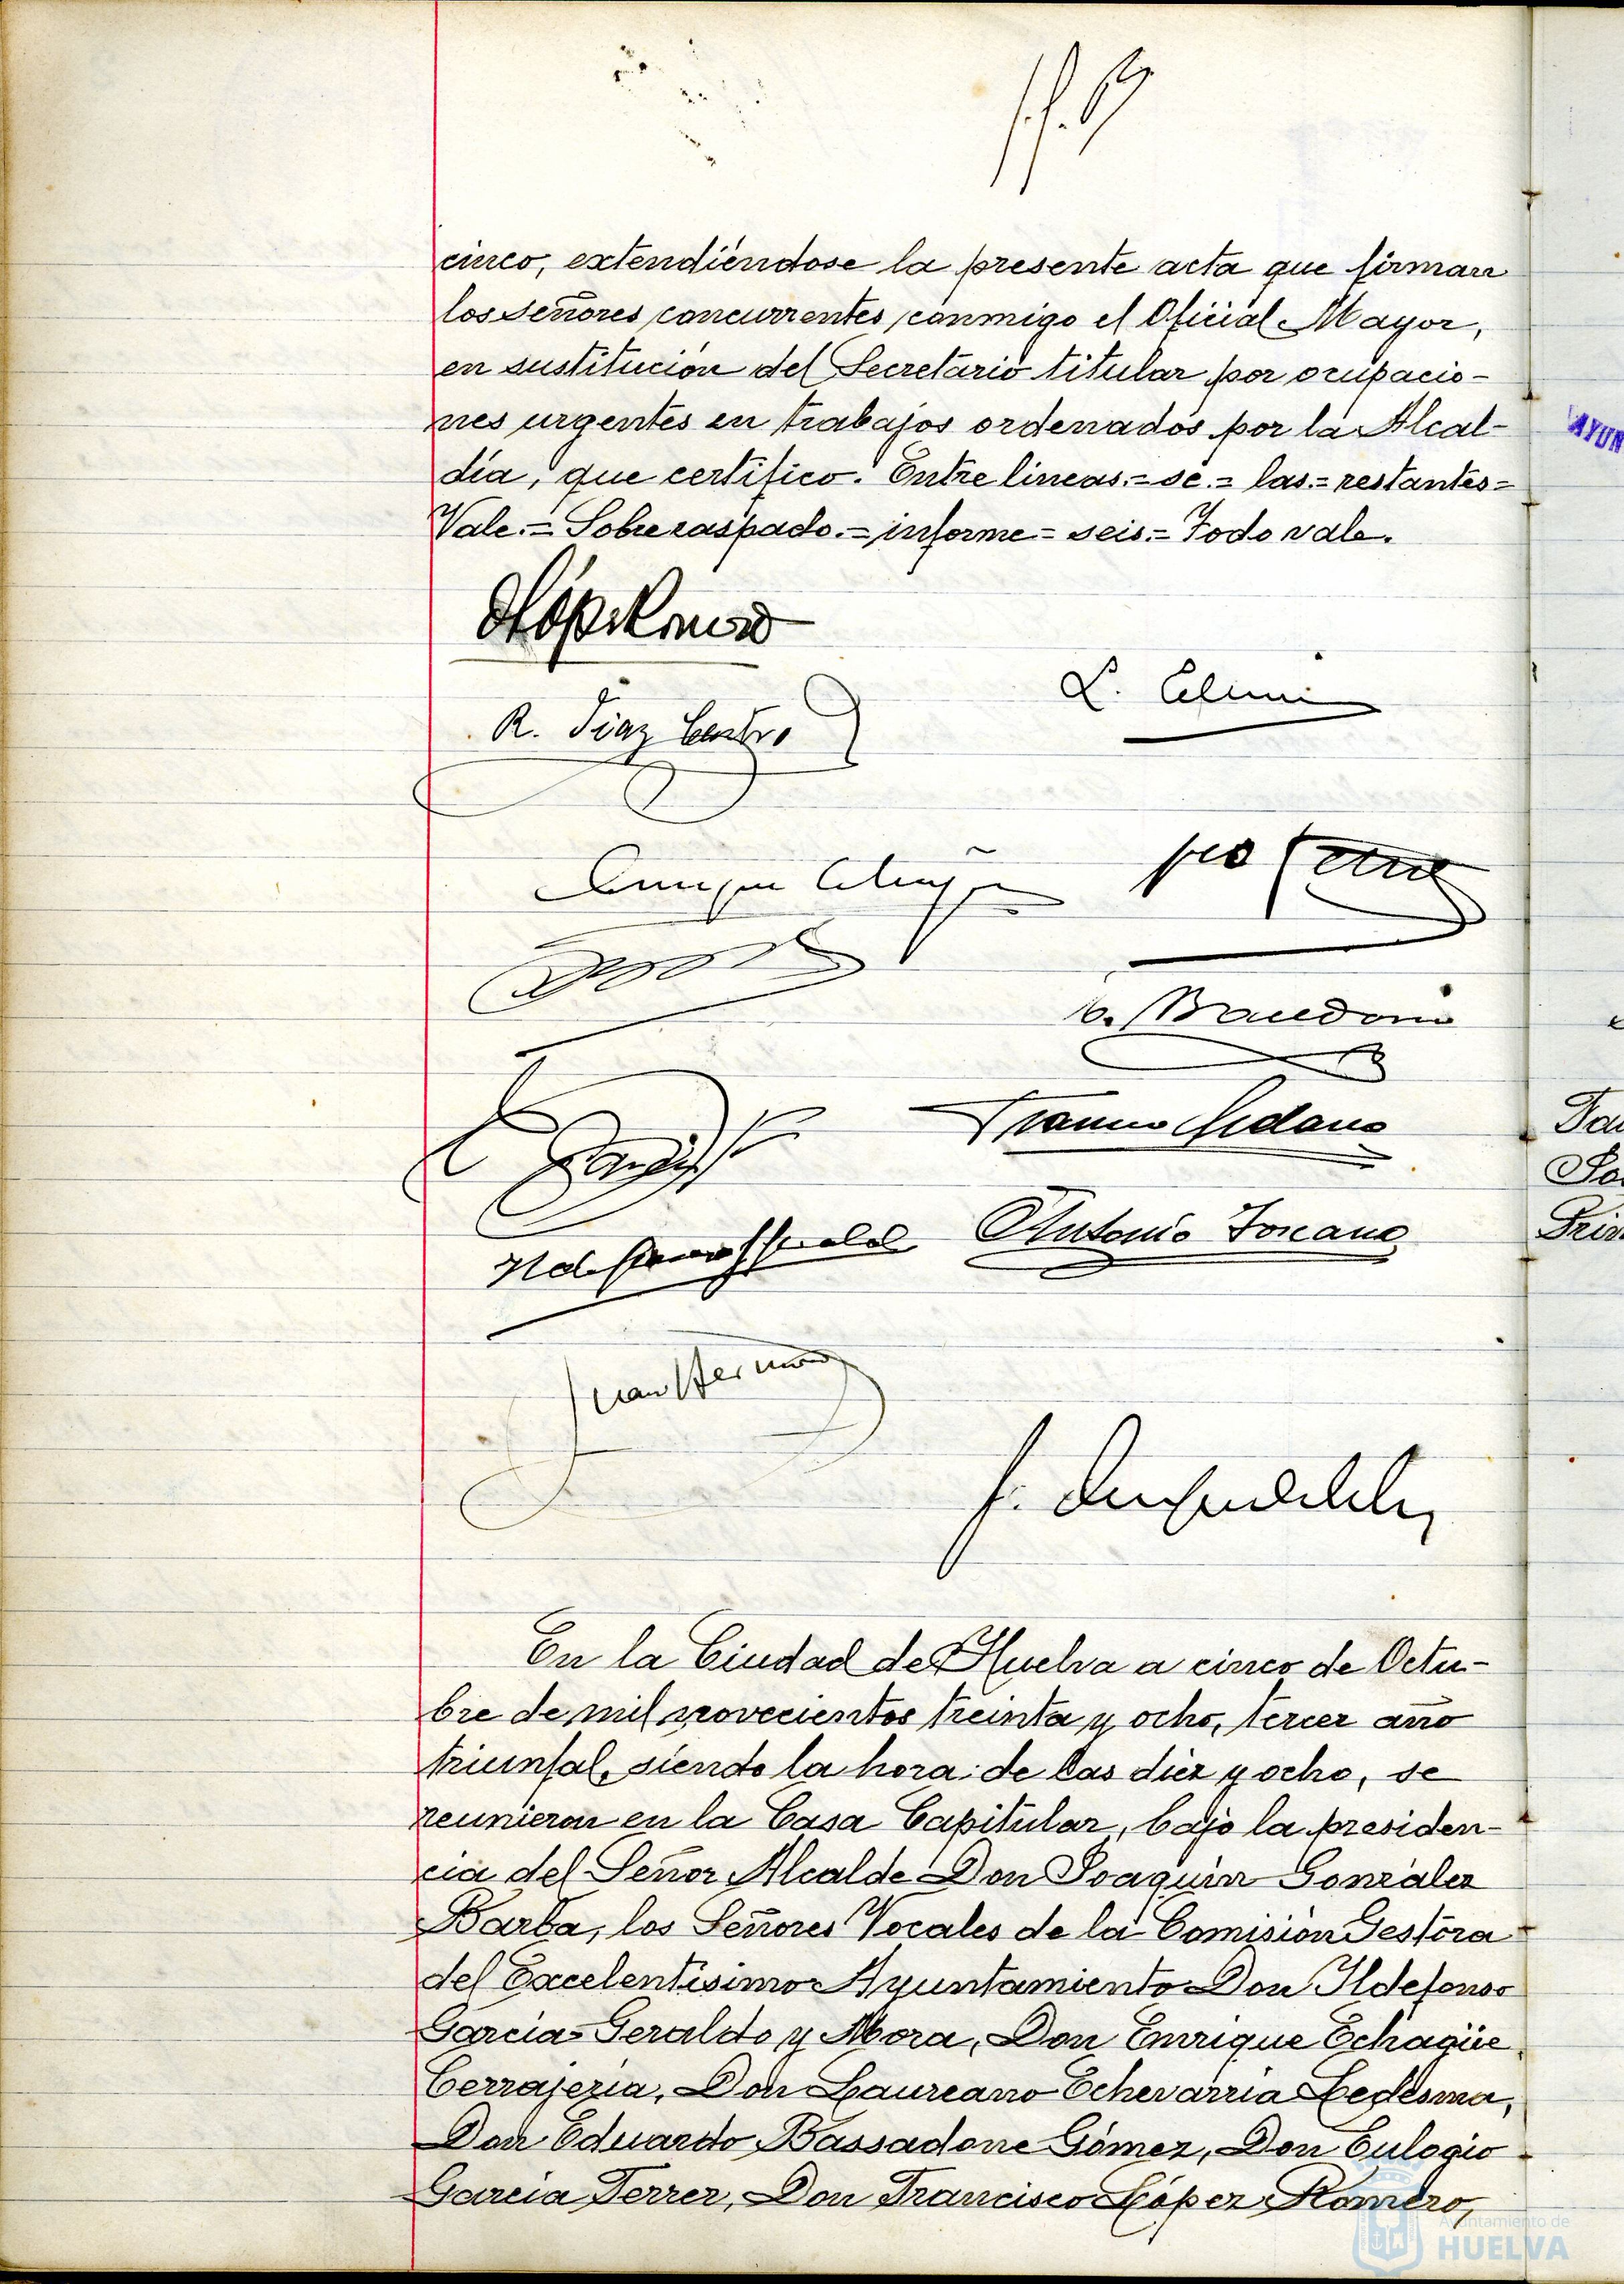 cinco, extendiéndose la presente acta que firman
los Señores concurrentes conmigo el Oficial Mayor,
en sustitución del Secretario titular por ocupacio-
nes urgentes en trabajos ordenados por la Alcal-
día, que certifico. Entre lineas.= se.= las.= restantes=
Vale.= Sobre raspado.= informe= seis.= Todo vale.
R. Diaz Castro
Antonio Toscano
En la Ciudad de Huelva a cinco de Octu-
bre de mil novecientos treinta y ocho, tercer año
triunfal, siendo la hora de las diez y ocho, se
reunieron en la Casa Capitular, bajo la presiden-
cia del Señor Alcalde Don Joaquín González
Barba, los Señores Vocales de la Comisión Gestora
del Excelentísimo Ayuntamiento Don Ildefonso
García Geraldo y Mora, Don Enrique Echagüe
Cerrajería, Don Laureano Echevarría Ledesma,
Don Eduardo Bassadone Gómez, Don Eulogio
García Ferrer, Don Francisco López Romero,
Ayuntamiento de
HUELVA